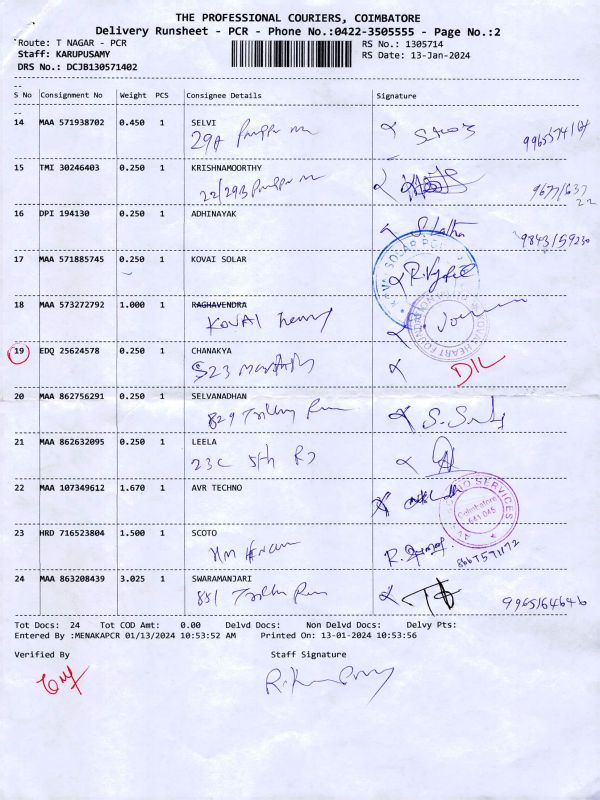 THE PROFESSIONAL COURIERS, COIMBATORE
Delivery Runsheet - PCR - Phone No.:0422-3505555 - Page No.:2
Route: T NAGAR - PCR RS No.: 1305714
Staff: KARUPUSAMY RS Date: 13-Jan-2024
DRS No.: DCJB130571402
S No Consignment No Weight PCS Consignee Details Signature
14 MAA 571938702 0.450 1 SELVI
29A
15 TMI 30246403 0.250 1 KRISHNAMOORTHY
22/29B
16 DPI 194130 0.250 1 ADHINAYAK S. Latha
9843159230
17 MAA 571885745 0.250 1 KOVAI SOLAR
18 MAA 573272792 1.000 1 RAGHAVENDRA
KOVAI
19 EDQ 25624578 0.250 1 CHANAKYA
523 DIL
20 MAA 862756291 0.250 1 SELVANADHAN
829
21 MAA 862632095 0.250 1 LEELA
23C 5th Rd
22 MAA 107349612 1.670 1 AVR TECHNO
Coimbatore
641 045
23 HRD 716523804 1.500 1 SCOTO
24 MAA 863208439 3.025 1 SWARAMANJARI
851 9965164646
Tot Docs: 24 Tot COD Amt: 0.00 Delvd Docs: Non Delvd Docs: Delvy Pts:
Entered By :MENAKAPCR 01/13/2024 10:53:52 AM Printed On: 13-01-2024 10:53:56
Verified By Staff Signature